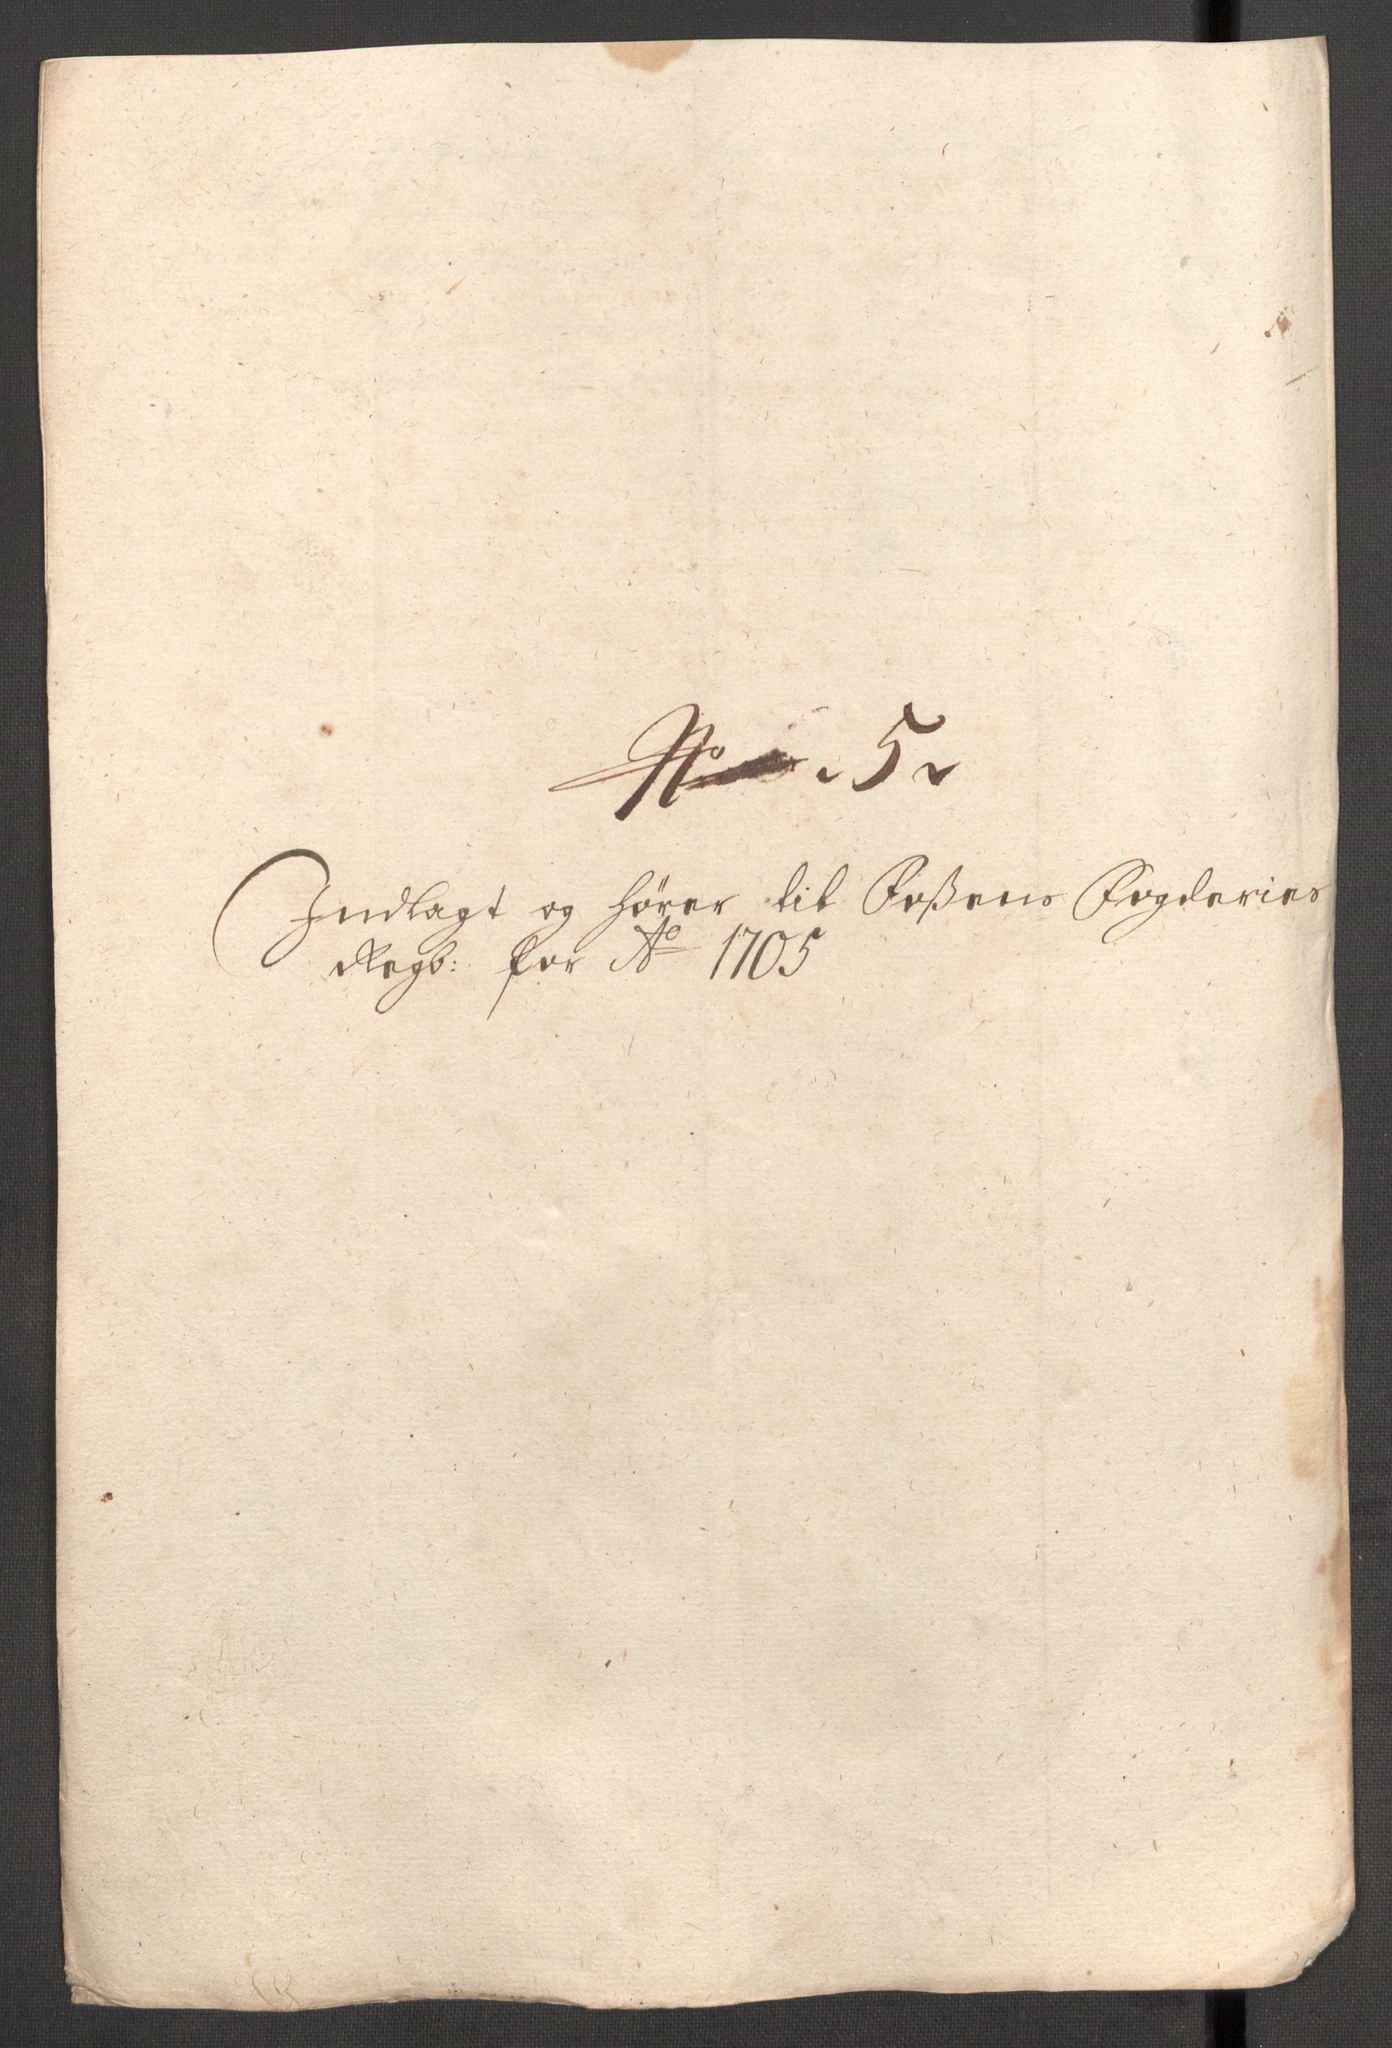 No 5
Indlagt og hører til Foßens Fogderies
Regb: for Ao 1705